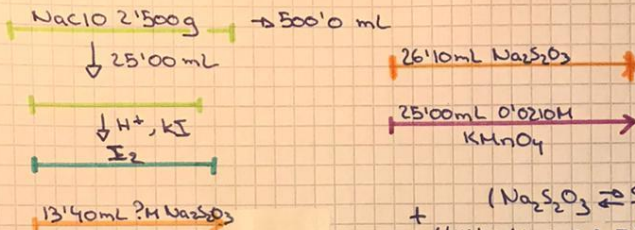 NaClO 2'500g → 500'0 mL
↓ 25'00 mL
↓ H+, KI
I2
13'40mL ?M Na2S2O3
26'10mL Na2S2O3
25'00mL 0'0210M
KMnO4
(Na2S2O3 ⇄
+